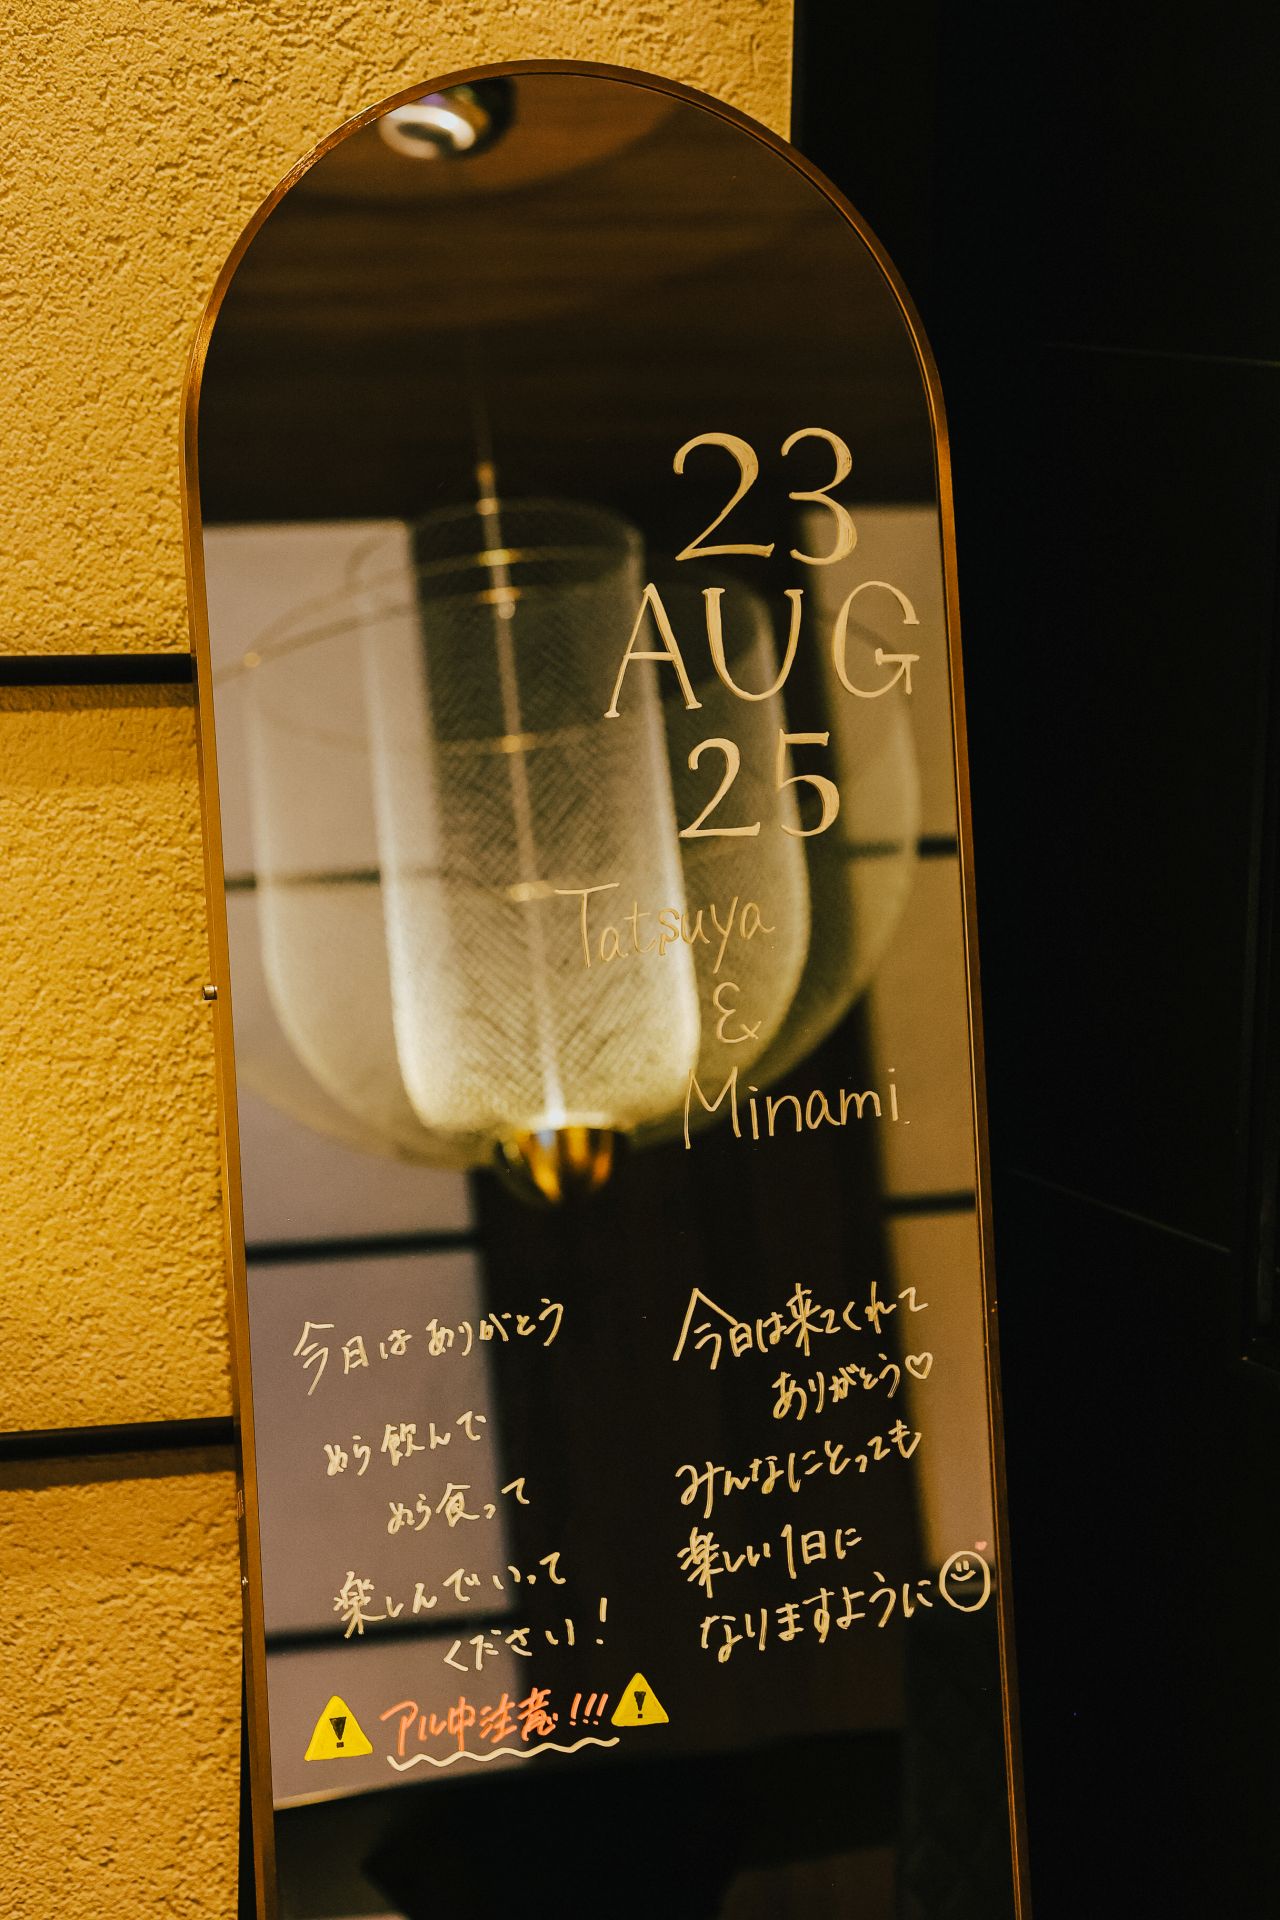 23
AUG
25
Tatsuya
&
Minami
今日はありがとう
めら飲んで
めら食って
楽しんでいって
ください!
アル中注意!!!
今日は来てくれて
ありがとう♡
みんなにとっても
楽しい1日に
なりますように